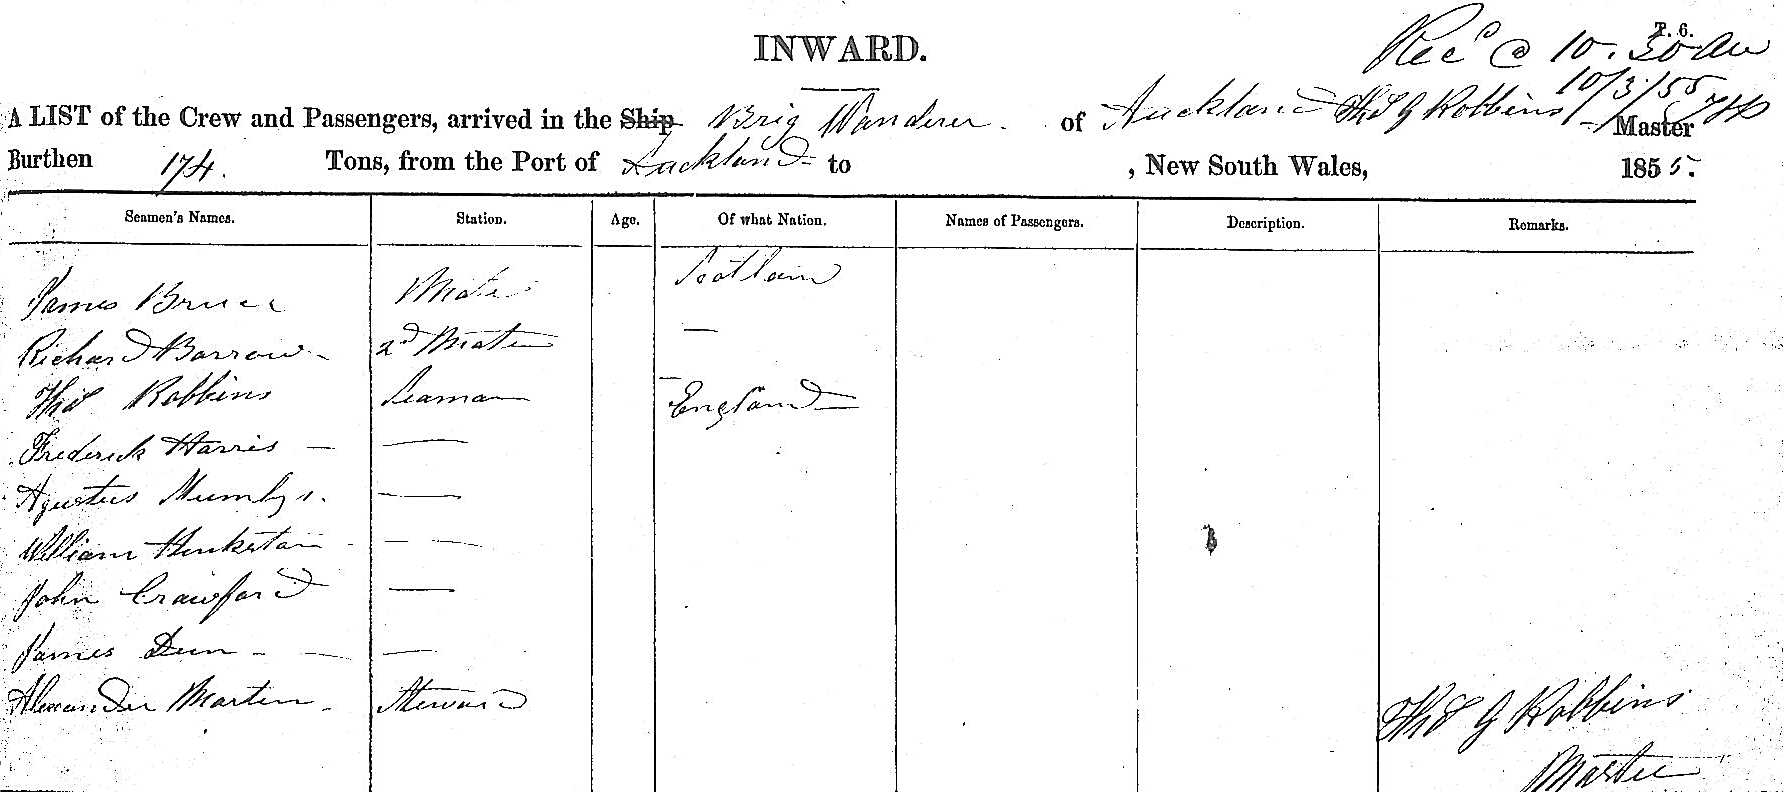 T. 6.
Rec'd @ 10.30 am
INWARD.
10/3/55
A LIST of the Crew and Passengers, arrived in the Ship Brig Wanderer. of Auckland Thos G Robbins Master
Burthen 174. Tons, from the Port of Auckland to , New South Wales, 1855.
Seamen's Names. Station. Age. Of what Nation. Names of Passengers. Description. Remarks.
James Bruce Mate Scotland
Richard Barrow - 2d Mate —
Thos Robbins Seaman England
Frederick Harris — —
Agustus —
William — —
John Crawford —
James Dun - — —
Alexander Marten - Steward
Thos G Robbins
Master